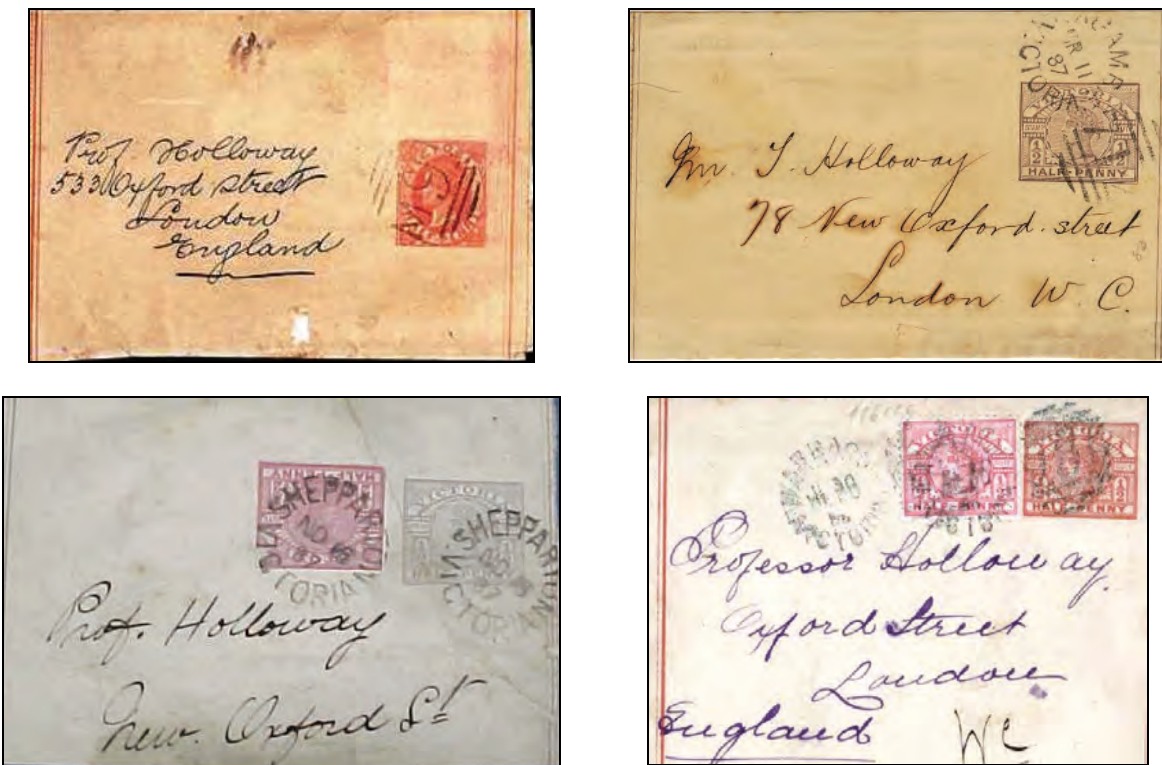 Prof. Holloway
533 Oxford Street
London
England
VICTORIA
½ ½
HALF-PENNY
Mr. T. Holloway
78 New Oxford. street
London W. C.
HALF-PENNY
SHEPPARTON
NO
87
VICTORIA
VICTORIA
SHEPPARTON
VICTORIA
Prof. Holloway
New. Oxford St
VICTORIA
½
HALF-PENNY
VICTORIA
½
HALF-PENNY
Professor Holloway.
Oxford Street
London
England WC